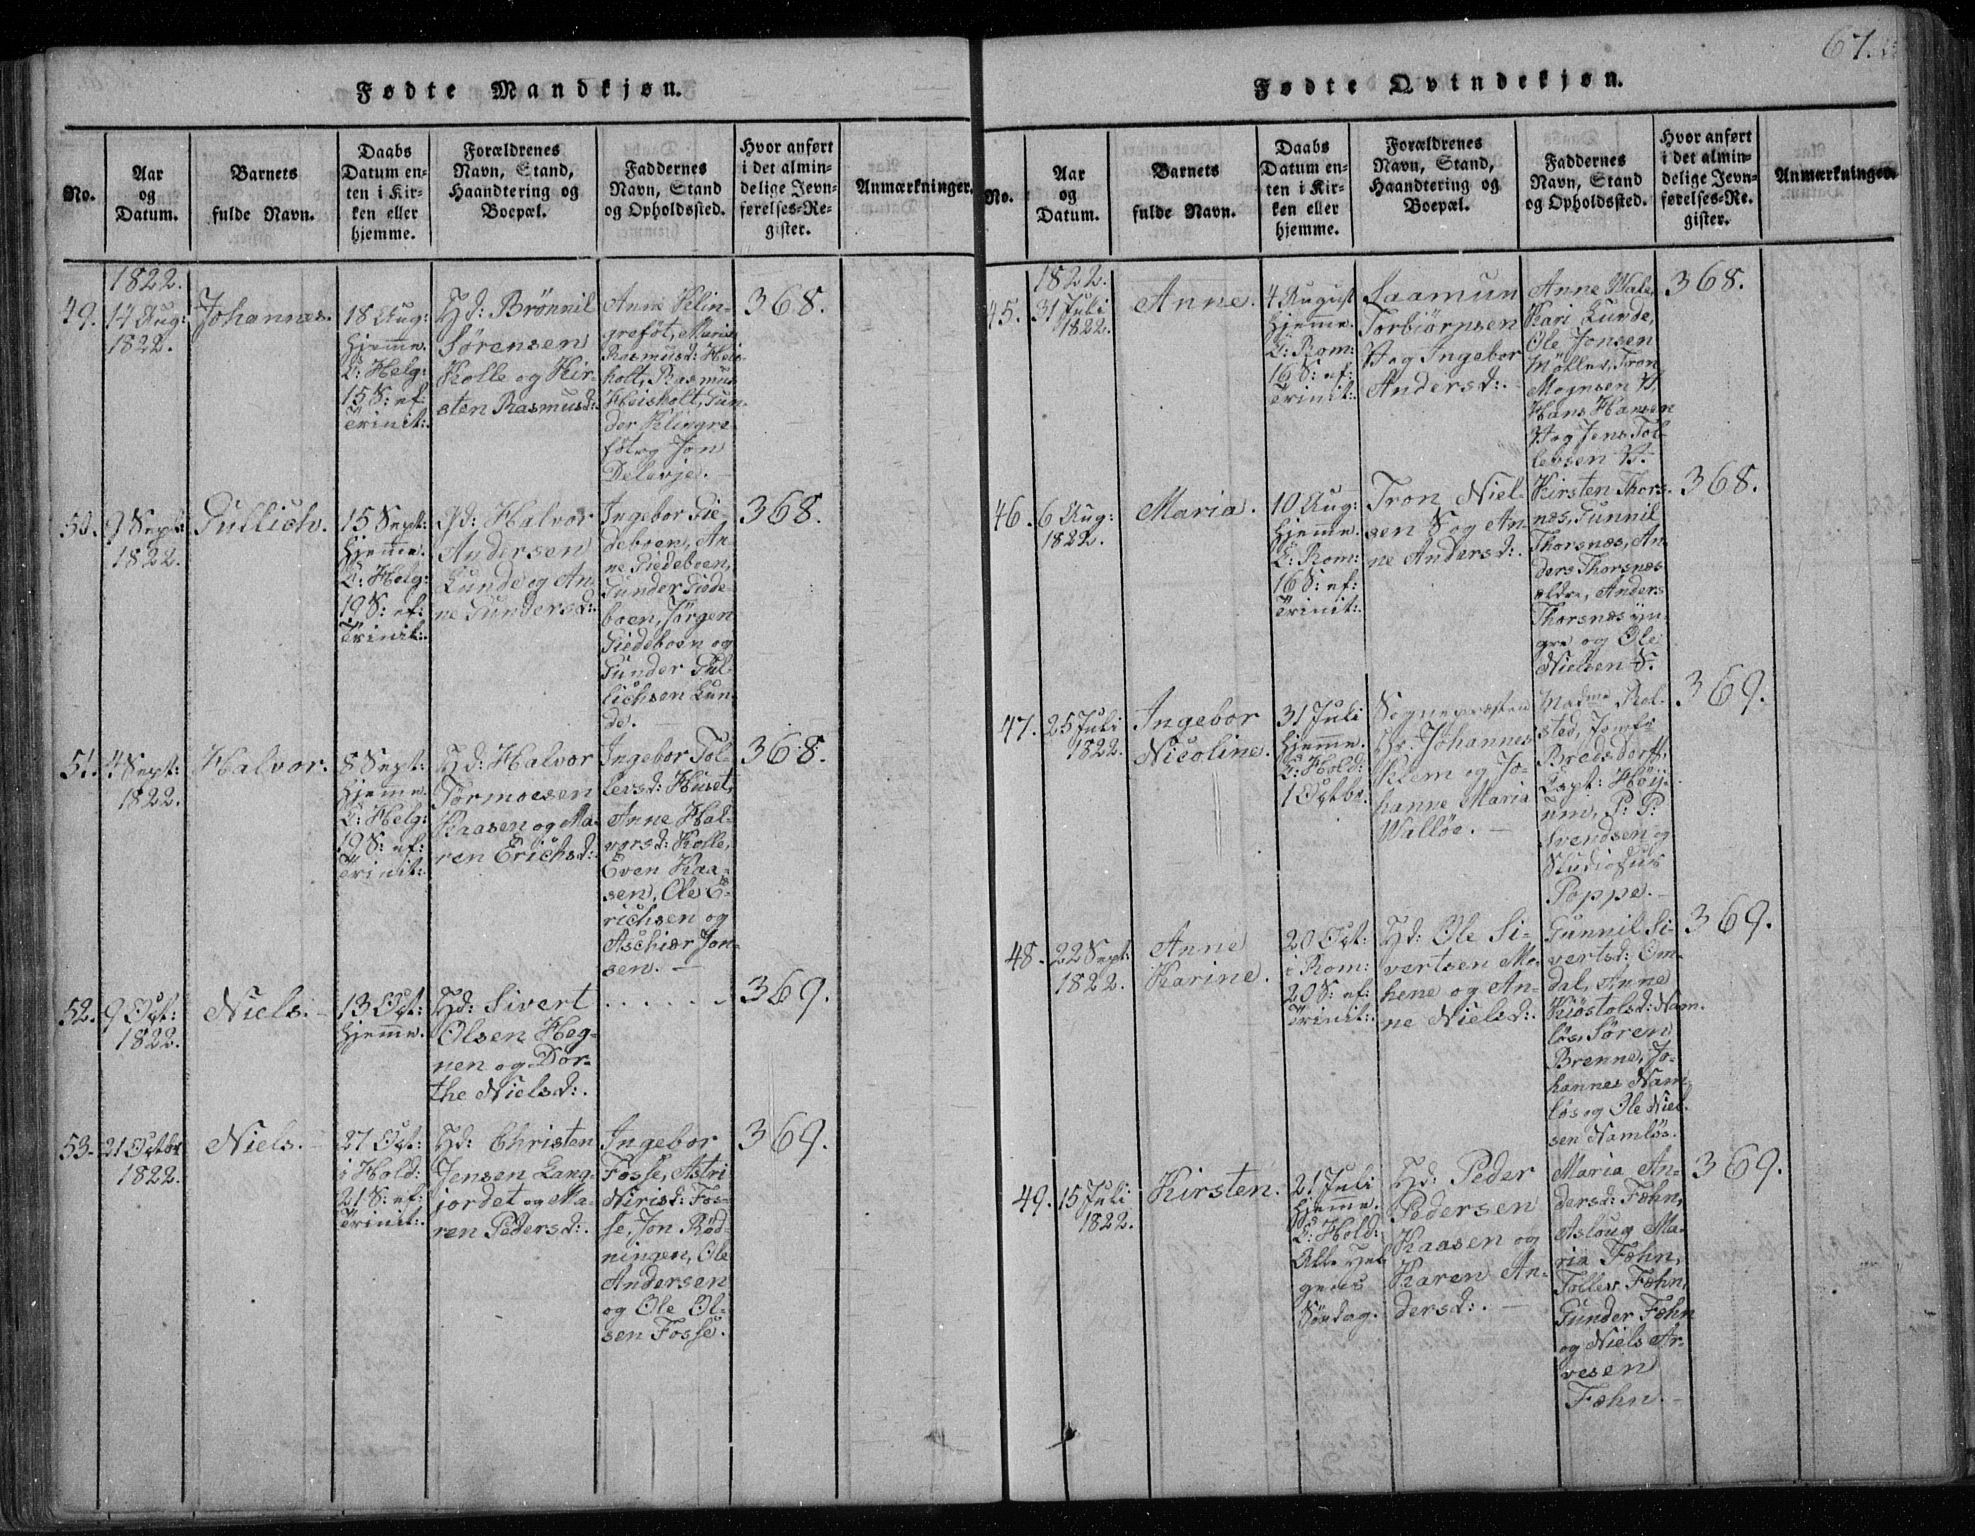 Fødte Mandkjøn.
No.
Aar
og
Datum.
Barnets
fulde Navn.
Daabs
Datum en-
ten i Kir-
ken eller
hjemme.
Forældrenes
Navn, Stand,
Haandtering og
Boepæl.
Faddernes
Navn, Stand
og Opholdssted.
Hvor anført
i det almin-
delige Jevn-
førelses-Re-
gister.
Anmærkninger.
1822.
49.
14 Aug:
1822.
Johannes.
18 Aug:
hjemme.
I: Helg:
15 S: ef
Trinit:
Hd: Brönnil
Sörensen
Kolle og Kir-
sten Rasmusd:
Anne Klin-
grefót, Maria
Rasmusd: Heis-
holt, Rasmus
Heisholt, Gun-
der Klingre-
fót og Jon
Delevje.
368.
50.
9 Sept:
1822.
Gullich.
15 Sept:
hjemme.
I: Helg:
19 S: ef:
Trinit:
Hd: Halvor
Andersen
Lunde og An-
ne Gundersd:
Ingebor Gie-
deboen, An-
ne Giedeboen,
Gunder Giede-
boen, Jörgen
Giedeboen og
Gunder Gul-
lichsen Lun-
de.
368.
51.
4 Sept:
1822.
Halvor.
8 Sept:
hjemme.
I: Helg:
19 S: ef:
Trinit:
Hd: Halvor
Tormoesen
Kaasen og Ma-
ren Erichsd:
Ingebor Tol-
levsd: Huset,
Anne Hal-
vorsd: Kolle,
Even Kaa-
sen, Ole E-
richsen og
Aschier Jon-
sen.
368.
52.
9 Oct:
1822.
Niels.
13 Oct:
hjemme.
Hd: Sivert
Olsen Heg-
nen og Dor-
the Nielsd:.
. . . . . .
369.
53.
21 Octbr
1822.
Niels.
27 Oct:
i Hold:
21 S: ef:
Trinit:
Hd: Christen
Jensen Lang-
jordet og Ma-
ren Pedersd:.
Ingebor
Fosse, Astri
Nirisd: Fos-
se, Jon Röd-
ningen, Ole
Andersen
og Ole Ol-
sen Fosse.
369.
67.
Fødte Qvindekjøn.
No.
Aar
og
Datum.
Barnets
fulde Navn.
Daabs
Datum en-
ten i Kir-
ken eller
hjemme.
Forældrenes
Navn, Stand,
Haandtering og
Boepæl.
Faddernes
Navn, Stand
og Opholdssted.
Hvor anført
i det almin-
delige Jevn-
førelses-Re-
gister.
Anmærkninger.
1822.
45.
31 Juli
1822.
Anne.
4 August
hjemme.
I: Rom:
16 S: ef:
Trinit:
Saamun
Torbiörnsen
V og Ingebor
Andersd:.
Anne Vale,
Kari Lunde,
Ole Jonsen
Möller, Tron
Mognsen V.
Hans Hansen
V og Jens Tol-
lebsen V.
368.
46.
6 Aug:
1822.
Maria.
10 Aug:
hjemme.
I: Rom:
16 S: ef:
Trinit:
Tron Niel-
sen S og An-
ne Andersd:.
Kirsten Thors-
nes, Gunnil
Thorsnæs, An-
ders Thorsnæs
ældre, Anders
Thorsnæs yn-
gre og Ole
Nielsen S.
368.
47.
25 Juli
1822.
Ingebor
Nicoline.
31 Juli
hjemme.
I: Hold:
1 Octbr.
Sognepræsten
Hr. Johannes
Klem og Jo-
hanne Maria
Wallöe.
Madme Rol-
sted, Jomfr
Bredsdorff,
Capt: Höij-
um, P: P:
Svendsen og
Studiosus
Poppe.
369.
48.
22 Sept:
1822.
Anne
Karine.
20 Oct:
i Rom:
20 S: ef:
Trinit:
Hd: Ole Si-
vertsen Mo-
hene og An-
ne Nielsd:.
Gunnil Si-
vertsd: Om-
dal, Anne
Kiöstolsd: Nam-
lös, Sören
Brenne, Jo-
hannes Nam-
lös og Ole Niel-
sen Namlös.
369.
49.
15 Juli
1822.
Kirsten.
21 Juli
hjemme.
I: Hold:
Alle Hel-
genes
Söndag.
Hd: Peder
Pedersen
Kaasen og
Karen An-
dersd:.
Maria An-
dersd: Fæhn,
Asloug Ma-
ria Fæhn,
Tollev Fæhn,
Gunder Fæhn
og Niels Ar-
vesen
Fæhn.
369.